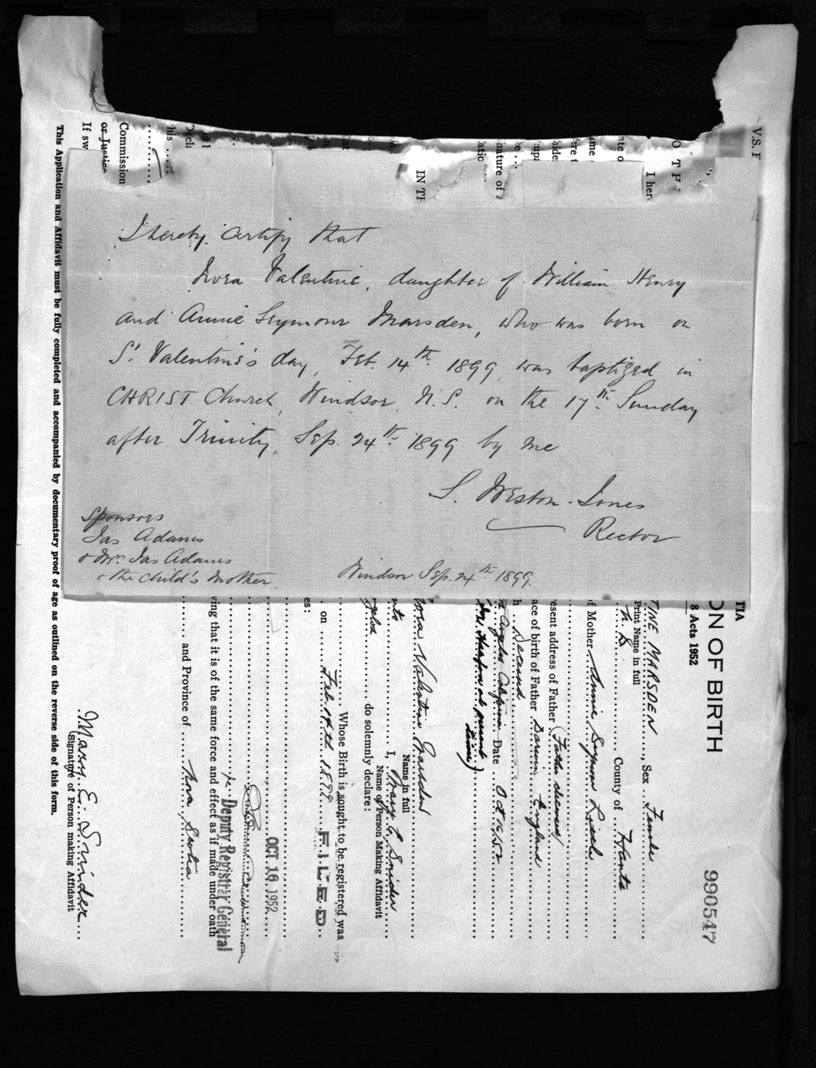 I hereby certify that
Nora Valentine, daughter of William Henry
and Annie Seymour Marsden, who was born on
St Valentine's day, Feb. 14th 1899, was baptized in
CHRIST Church, Windsor, N.S. on the 17th Sunday
after Trinity, Sep. 24th 1899 by me
S. Weston-Jones
Rector
Sponsors
Jas Adams
& Mrs Jas Adams
& the child's mother.
Windsor Sep. 24th 1899.
V.S. F
O T P
I here
IN TH
Commission
or Justice
If sw
TIA
8 Acts 1952
ON OF BIRTH
990547
TINE MARSDEN, Sex Female
Print Name in full
County of Hants
of Mother Annie Seymour
resent address of Father (Father deceased)
ace of birth of Father Devon England
Deceased
Date Oct 10/52
Nora Valentine Marsden
Name in full
I, Mary E. Snider
Name of Person Making Affidavit
do solemnly declare:
Whose Birth is sought to be registered was
on Feb. 14th 1899
FILED
OCT 16 1952
Deputy Registrar General
ving that it is of the same force and effect as if made under oath
and Province of Nova Scotia
Mary E. Snider
Signature of Person making Affidavit
This Application and Affidavit must be fully completed and accompanied by documentary proof of age as outlined on the reverse side of this form.